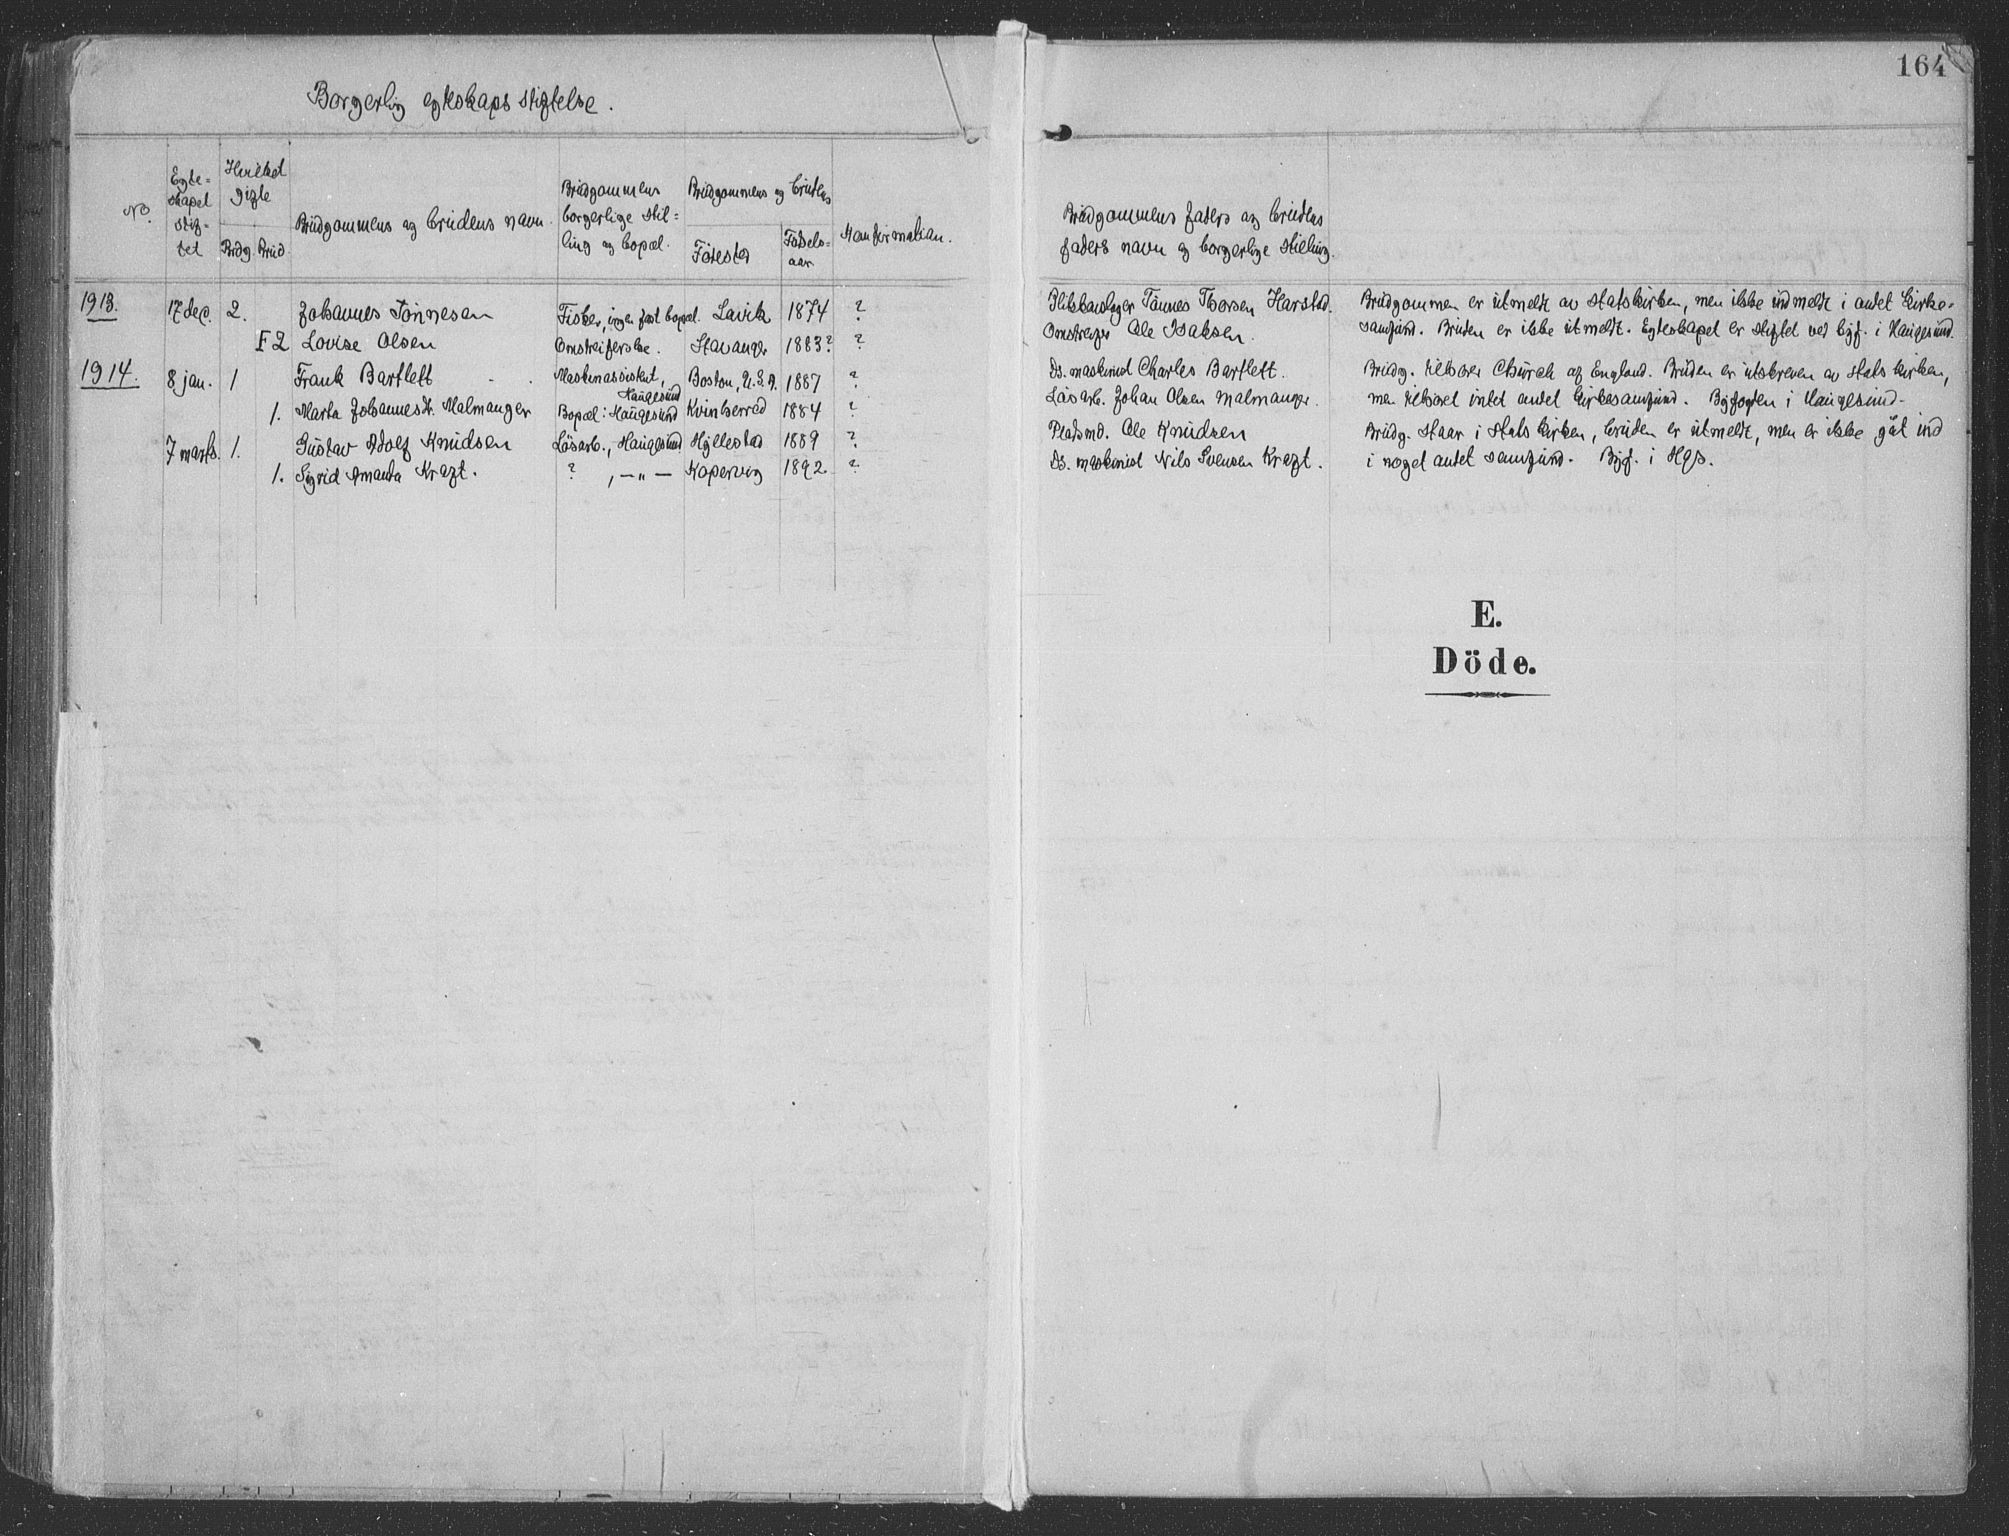 Borgerlig egteskaps stiftelse.
164
No.
Egte=
skapet
stif=
tet
Hvilket
gifte
Brdg. Brud.
Brudgommens og brudens navn.
Brudgommens
borgerlige stil=
ling og bopæl.
Brudgommens og brudens
Fødested
Fødsels-
aar
Konfirmation.
Brudgommens faders og brudens
faders navn og borgerlige stilling.
1913. 17 dec. 2. Johannes Tönnesen Fisker, ingen fast bopæl. Lavik 1874 ? Blikkenslager Tönnes Thorsen Harstad. Brudgommen er utmeldt av statskirken, men ikke indmeldt i andet kirke=
F 2 Lovise Olsen Omstreiferske. Stavanger 1883? ? Omstreifer Ole Isaksen. samfund. Bruden er ikke utmeldt. Egteskapet er stiftet ved byf. i Haugesund.
1914. 8 jan. 1 Frank Bartlett Maskinassistent, Haugesund Boston, U.S.A. 1887 ? Ds. maskinist Charles Bartlett. Brudg. tilhører Church of England. Bruden er utskreven av statskirken,
1. Marta Johannesdr. Malmanger Bopæl: Haugesund Kvinherred 1884 ? Lösarb. Johan Olsen Malmanger. men tilhører intet andet kirkesamfund. Byfogden i Haugesund.
7 marts 1. Gustav Adolf Knudsen Lösarb., Haugesund Hyllestad 1889 ? Pladsmd. Ole Knudsen Brudg. staar i statskirken, bruden er utmeldt, men er ikke gåt ind
1. Sigrid Amanda Kraft. ? , —„— Kopervig 1892. ? Ds. maskinist Nils Svensen Kraft. i noget andet samfund. Byf. i Hgs.
E.
Döde.